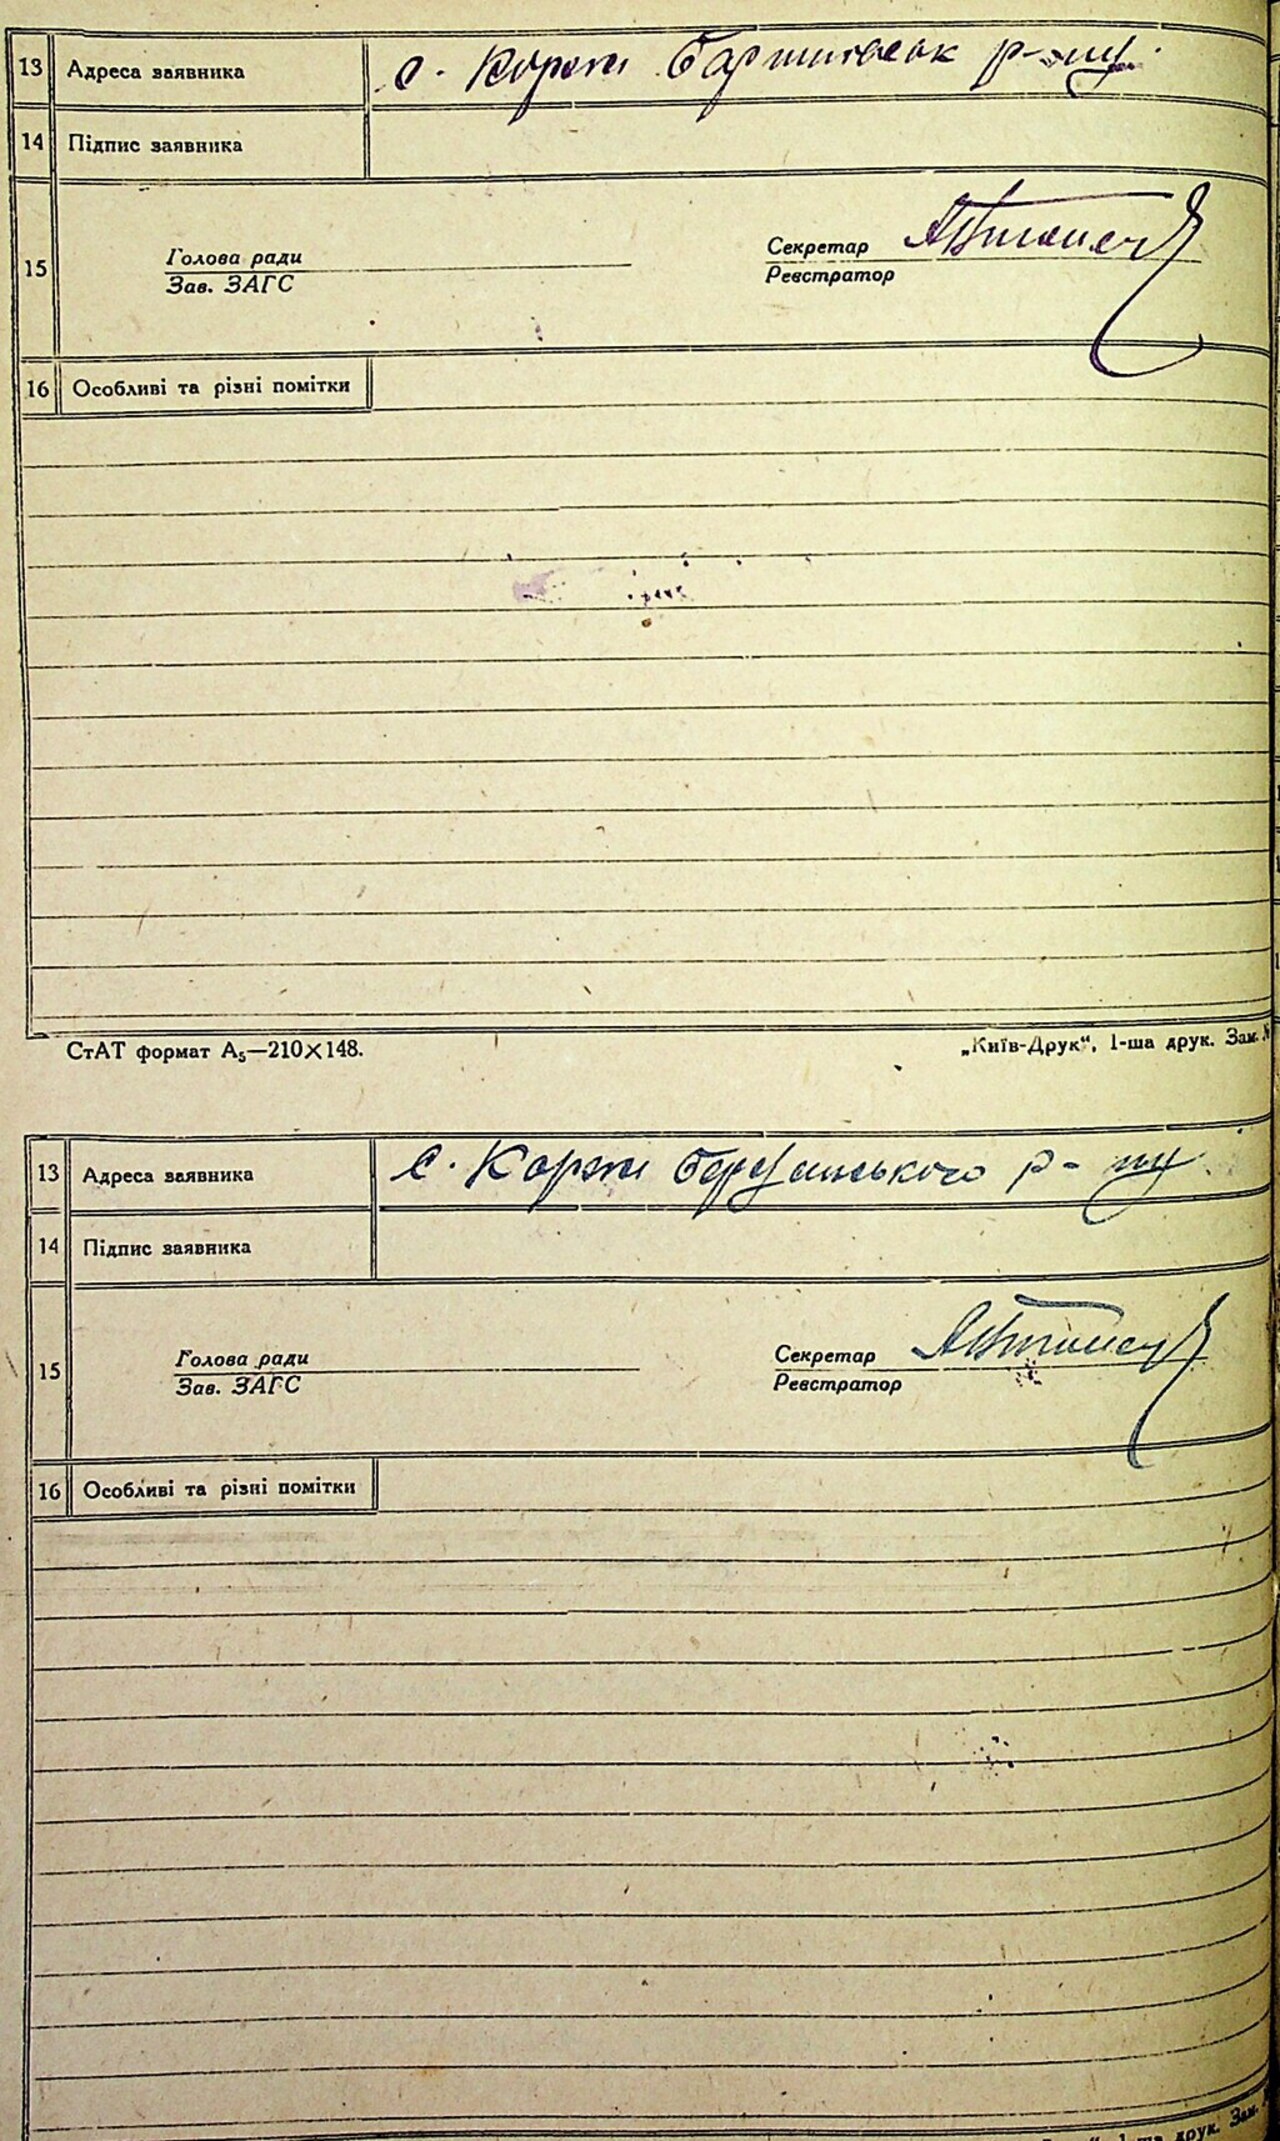 13 Адреса заявника с. Коржі Баришівськ р-ну.
14 Підпис заявника
15 Голова ради Секретар
Зав. ЗАГС Реєстратор
16 Особливі та різні помітки
СтАТ формат А5—210×148. „Київ-Друк“, 1-ша друк. Зам. №
13 Адреса заявника с. Коржі р-ну.
14 Підпис заявника
15 Голова ради Секретар
Зав. ЗАГС Реєстратор
16 Особливі та різні помітки
1-ша друк. Зам.